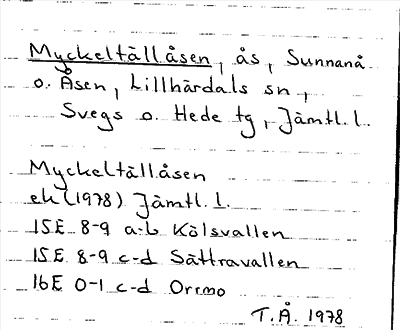 Myckeltällåsen, ås, Sunnanå
o. Åsen, Lillhärdals sn,
Svegs o. Hede tg, Jämtl. l.
Myckeltällåsen
ek (1978) Jämtl. l.
15E 8-9 a-b Kölsvallen
15E 8-9 c-d Sättravallen
16E 0-1 c-d Orrmo
T.Å. 1978